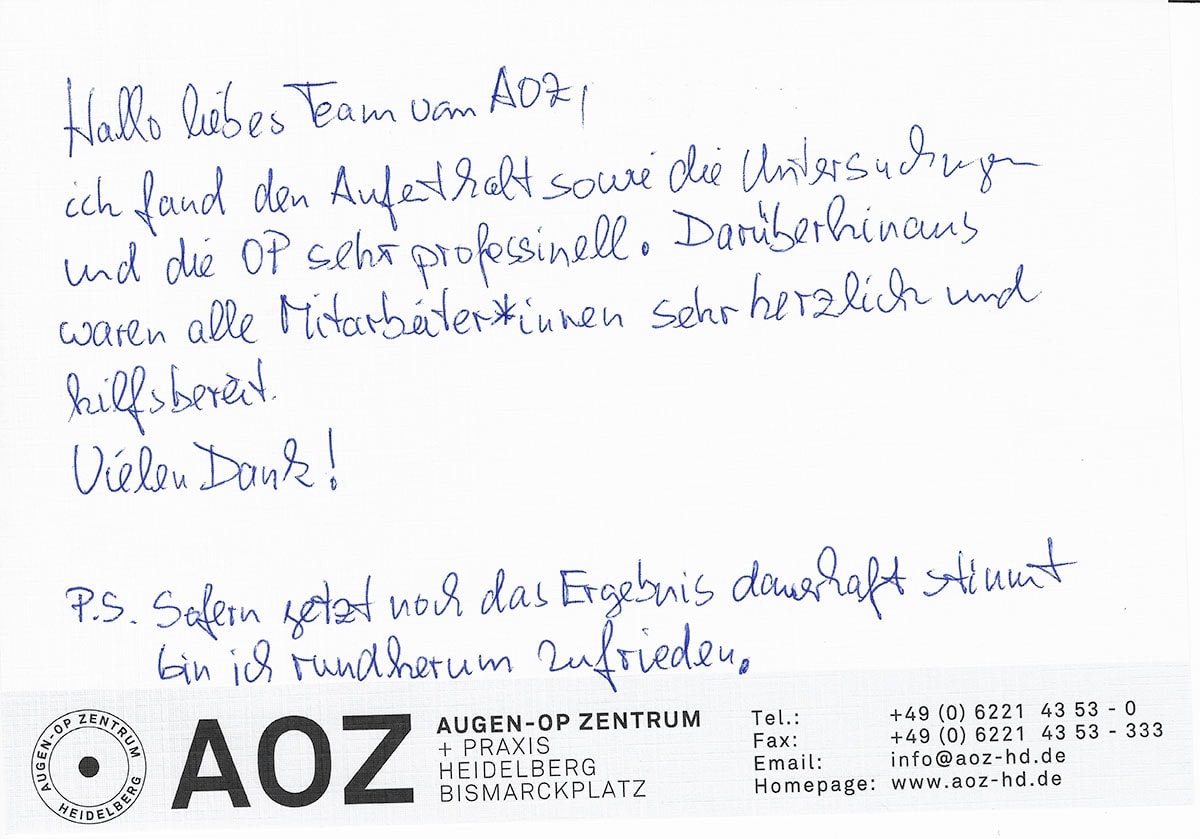 Hallo liebes Team vom AOZ,
ich fand den Aufethalt sowie die Untersuchungen
und die OP sehr professinell. Darüberhinaus
waren alle Mitarbeiter*innen sehr herzlich und
hilfsbereit.
Vielen Dank!
P.S. Sofern jetzt noch das Ergebnis dauerhaft stimmt
bin ich rundherum zufrieden.
AUGEN-OP ZENTRUM
HEIDELBERG
AOZ
AUGEN-OP ZENTRUM
+ PRAXIS
HEIDELBERG
BISMARCKPLATZ
Tel.: +49 (0) 6221 43 53 - 0
Fax: +49 (0) 6221 43 53 - 333
Email: info@aoz-hd.de
Homepage: www.aoz-hd.de